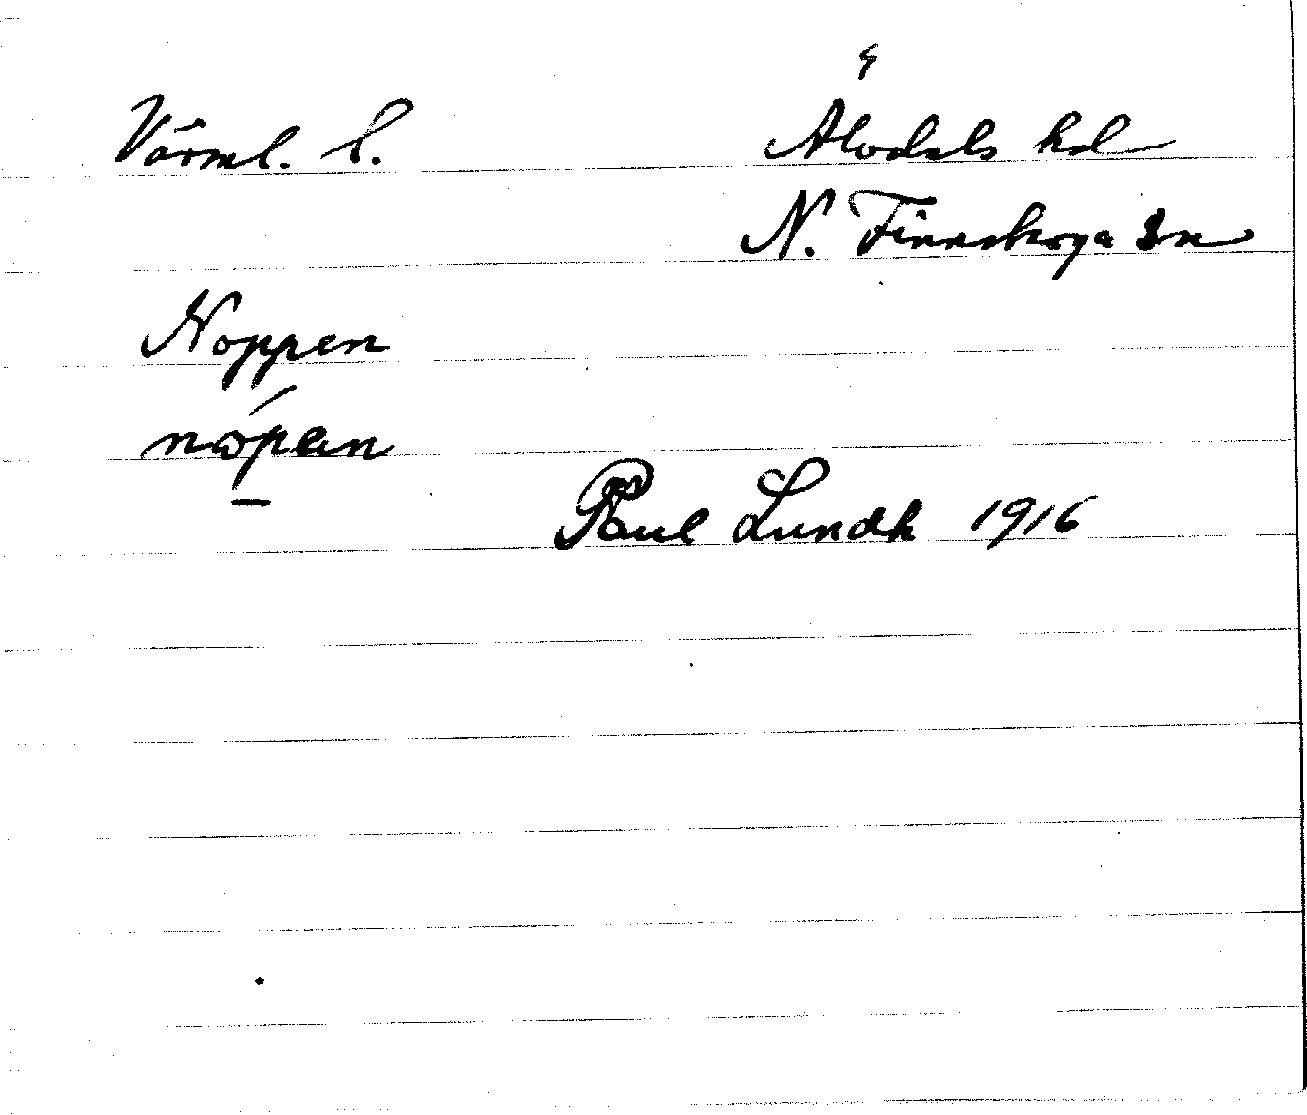 Värml. l.
Älvdals hd
N. Finnskoga sn
Noppen
nòpen
Paul Lundh 1916